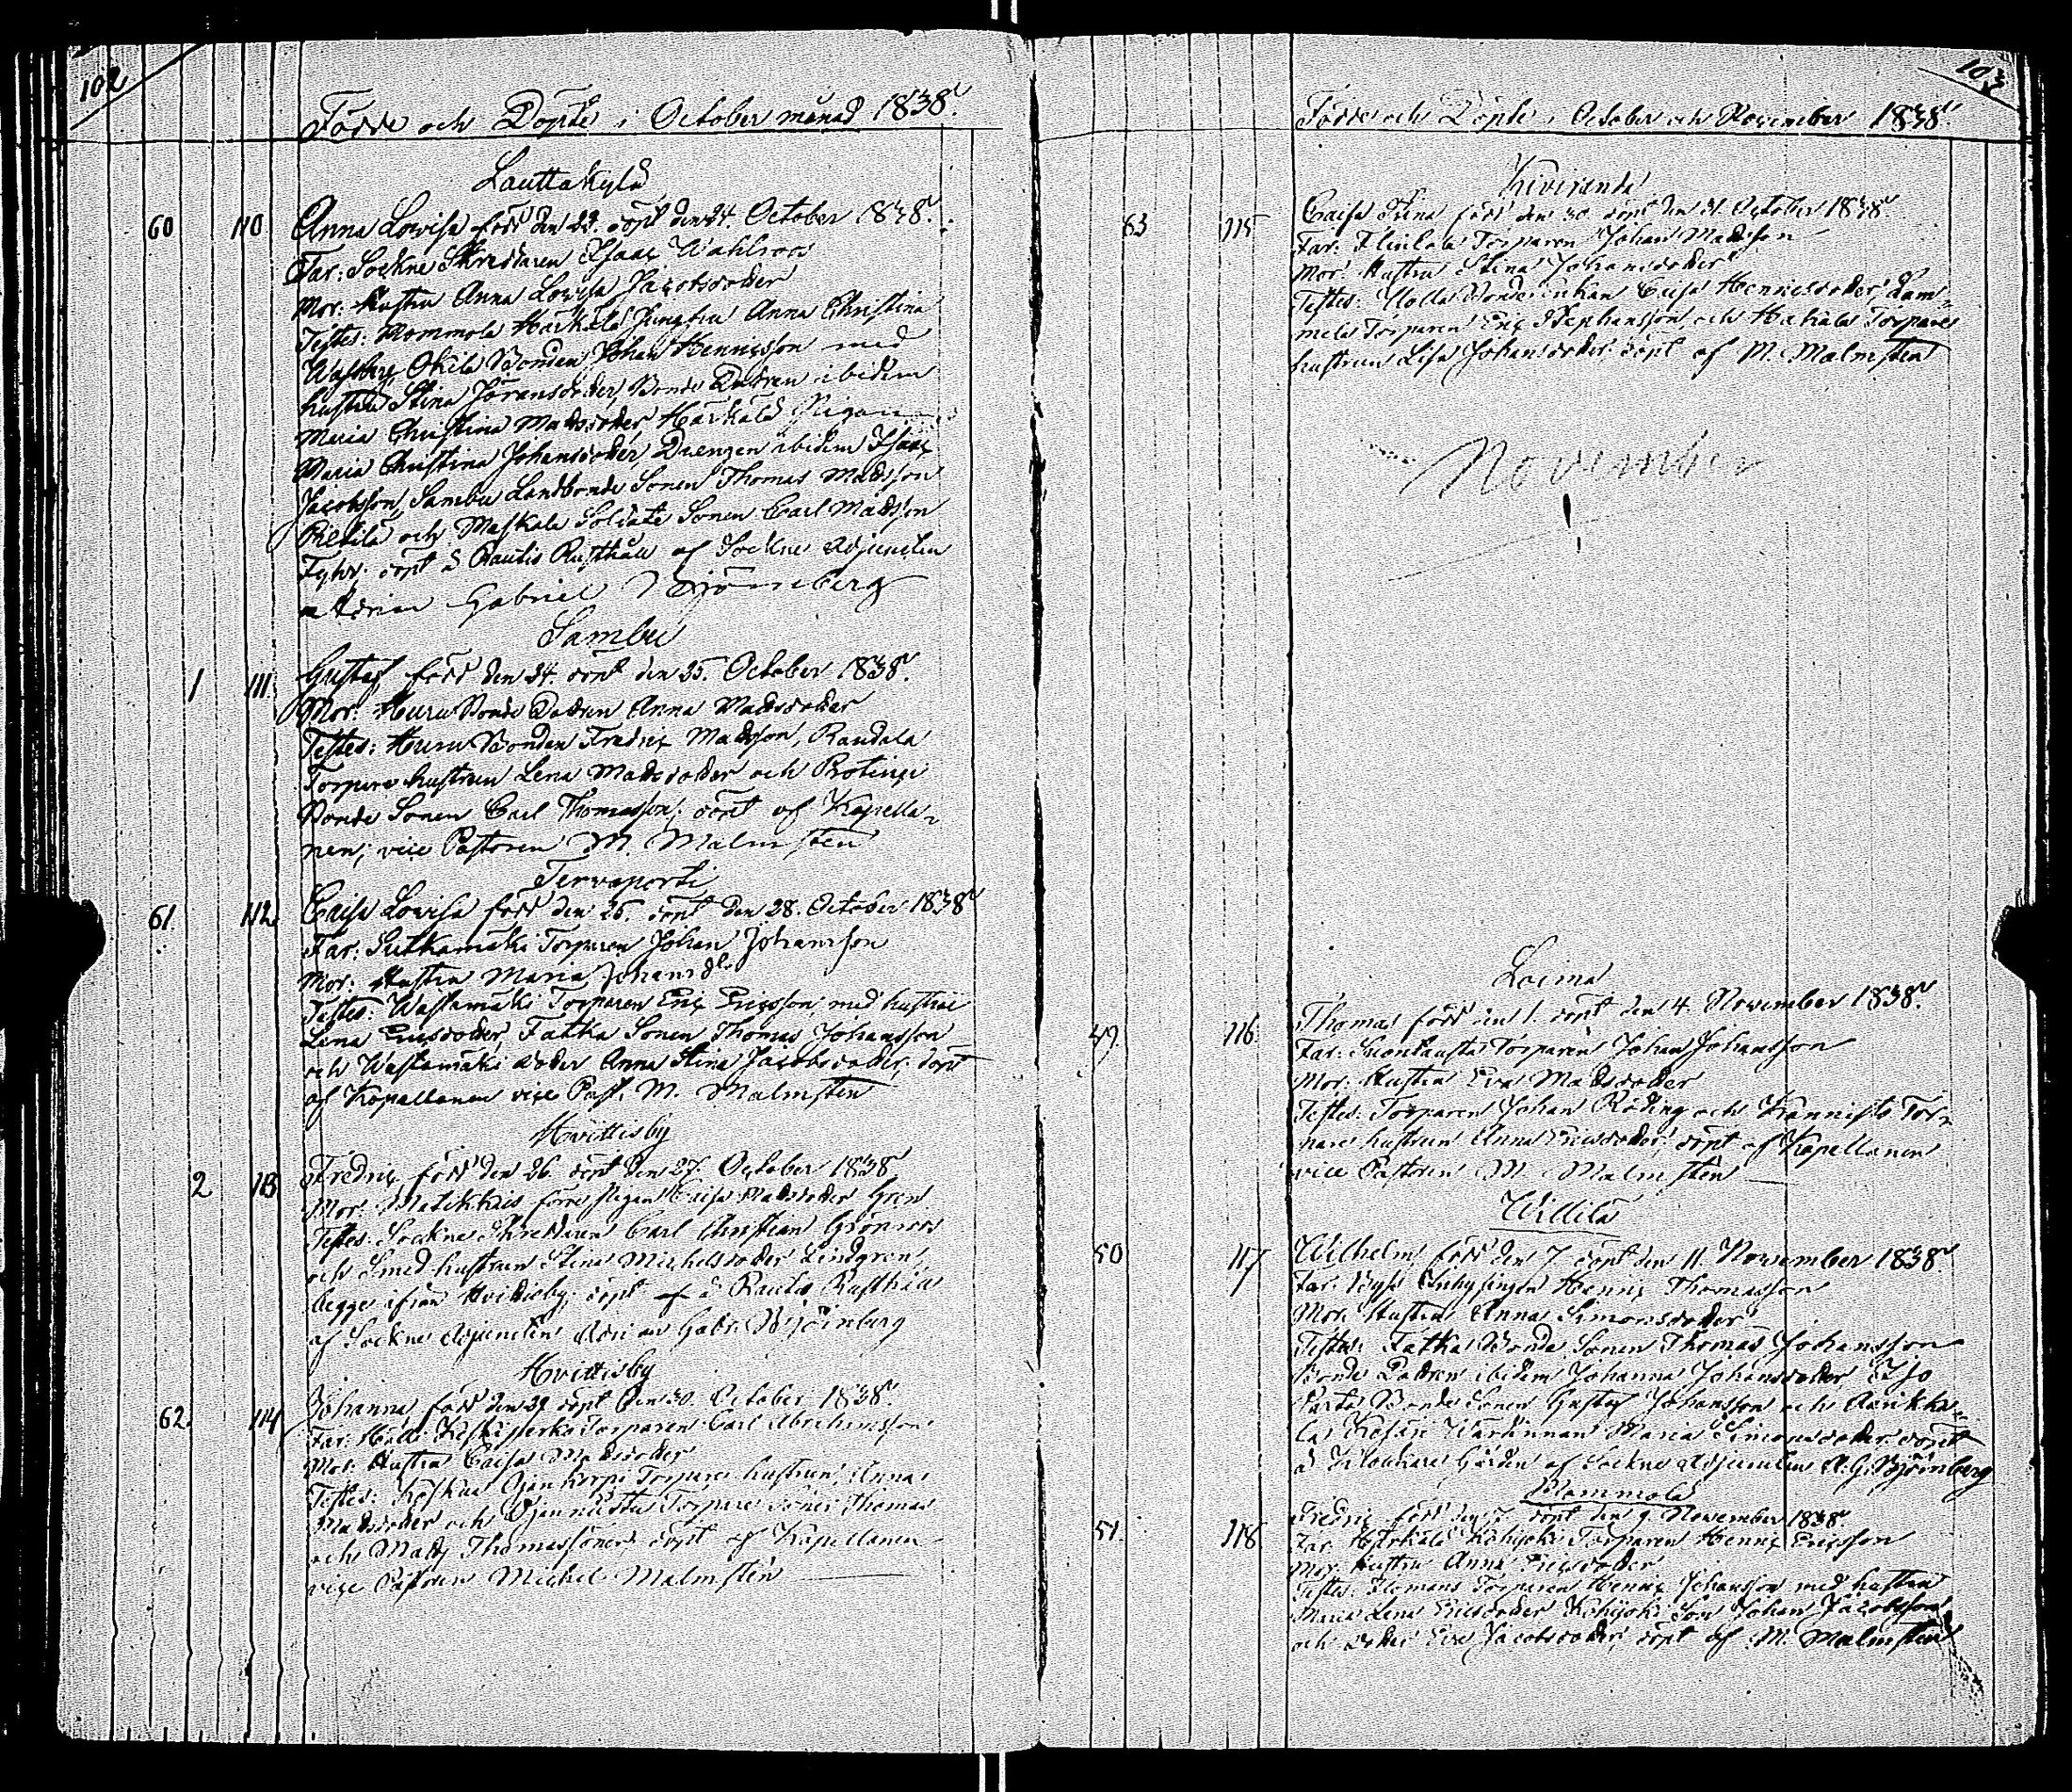 102
Födde och Döpte i October månad 1838.
Lauttakylä
60 110 Anna Lovisa född den 23. döpt den 24. October 1838.
Far: Sockne Skreddaren Isaac Wahlroos
Mor: Hustru Anna Lovisa Jacobsdoter
Testes: Rommola Härkälä Jungfru Anna Christina
Wasberg, Okila Bonden Johan Hennicsson med
hustru Stina Jöransdoter, Bonde Dottren ibidem
Maria Christina Madsdoter, Härkälä Pigan
Maria Christina Johansdoter, Drengen ibidem Isaac
Jacobsson, Sambu Landbonde Sonen Thomas Madsson
och Maskala Soldats Sonen Carl Madsson
döpt å Rautio Rusthåll af Sockne Adjuncten
Adrian Gabriel Björneberg
Sambu
1 111 Gustaf född den 24. döpt den 25. October 1838.
Mor: Huru Bonde Dottren Anna Madsdoter
Testes: Huru Bonden Fredric Madsson, Raudala
Torpare hustrun Lena Madsdoter och
Bonde Sonen Carl Thomasson; döpt af Kapella-
nen, vice Pastoren M. Malmsten
Tervaporti
61 112 Caisa Lovisa född den 26. döpt den 28. October 1838
Far: Torparen Johan Johansson
Mor: Hustru Maria Johansdr
Testes: Wastamäki Torparen Eric Ericsson, med hustru
Lena Ericsdoter, Fatka Sonen Thomas Johansson
och Wastamäki doter Anna Stina Jacobsdoter; döpt
af Kapellanen vice Past. M. Malmsten
Hvittisby
2 113 Fredric född den 26. döpt den 27. October 1838
Mor: förre Pigan Caisa Madsdoter Gren
Testes: Sockne Skreddaren Carl Christian Grönroos
och Smed hustrun Stina Michelsdoter Lindgren,
begge ifrån Hvittisby; döpt å Rautio Rusthåll
af Sockne Adjuncten Adrian Gabr. Björnberg
Hvittisby
62. 114 Johanna född den 29. döpt den 30. October 1838.
Far: Torparen Carl Abrahamsson
Mor: Hustru Caisa Madsdoter
Testes: Torpare hustrun Anna
Madsdoter och Torpare Söner Thomas
och Mads Thomassöner, döpt af Kapellanen
vice Pastoren Michel Malmsten
103
Födde och Döpte i October och November 1838.
Kiviranda
63 115 Caisa Stina född den 30. döpt den 31. October 1838
Far: Torparen Johan Madsson
Mor: Hustru Stina Johansdoter
Testes: Bonde enkan Caisa Hennicsdoter, Lam-
mela Torparen Eric Stephansson, och Torpare
hustrun Lisa Johansdoter; döpt af M. Malmsten
November
Loima
49. 116 Thomas född den 1. döpt den 4. November 1838.
Far: Suontausta Torparen Johan Johansson
Mor: Hustru Eva Madsdoter
Testes: Torparen Johan Röding och Kannisto Tor-
pare hustrun Anna Ericsdoter; döpt af Kapellanen
vice Pastoren M. Malmsten
Willilä
50 117 Wilhelm född den 7. döpt den 11. November 1838.
Far: Henric Thomasson
Mor: Hustru Anna Simonsdoter
Testes: Fatka Bonde Sonen Thomas Johansson
Bonde Dottren ibidem Johanna Johansdoter, Iso
Bonde Sonen Gustaf Johansson och
Maria Simonsdoter döpt
å Klockare Gården af Sockne Adjuncten A. G. Björnberg
Rommola
51. 118 Fredric född den 7. döpt den 9. November 1838.
Far: Härkälä Kohijoki Torparen Henric Ericsson
Mor: Hustru Anna Ericsdoter
Testes: Torparen Henric Johansson med hustru
Maria Lena Ericsdoter, Kohijoki Son Johan Jacobsson
och doter Eva Jacobsdoter, döpt af M. Malmsten